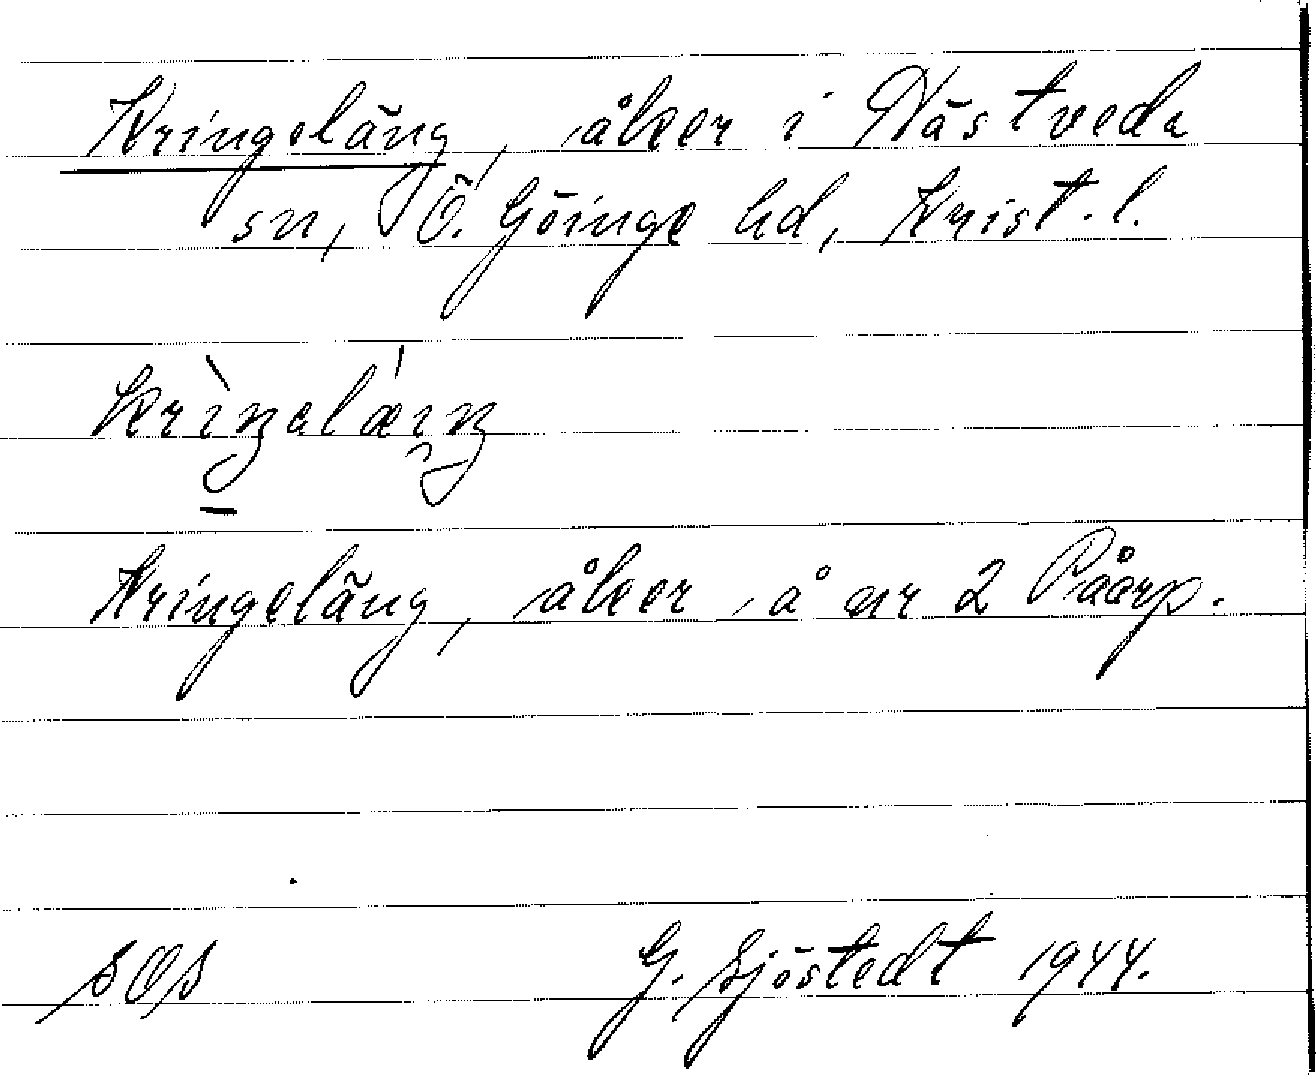 Kringeläng, åker i Hästveda
sn, Ö. Göinge hd, Krist. l.
Kringeläng, åker å nr 2 Påarp.
SOS G. Sjöstedt 1944.